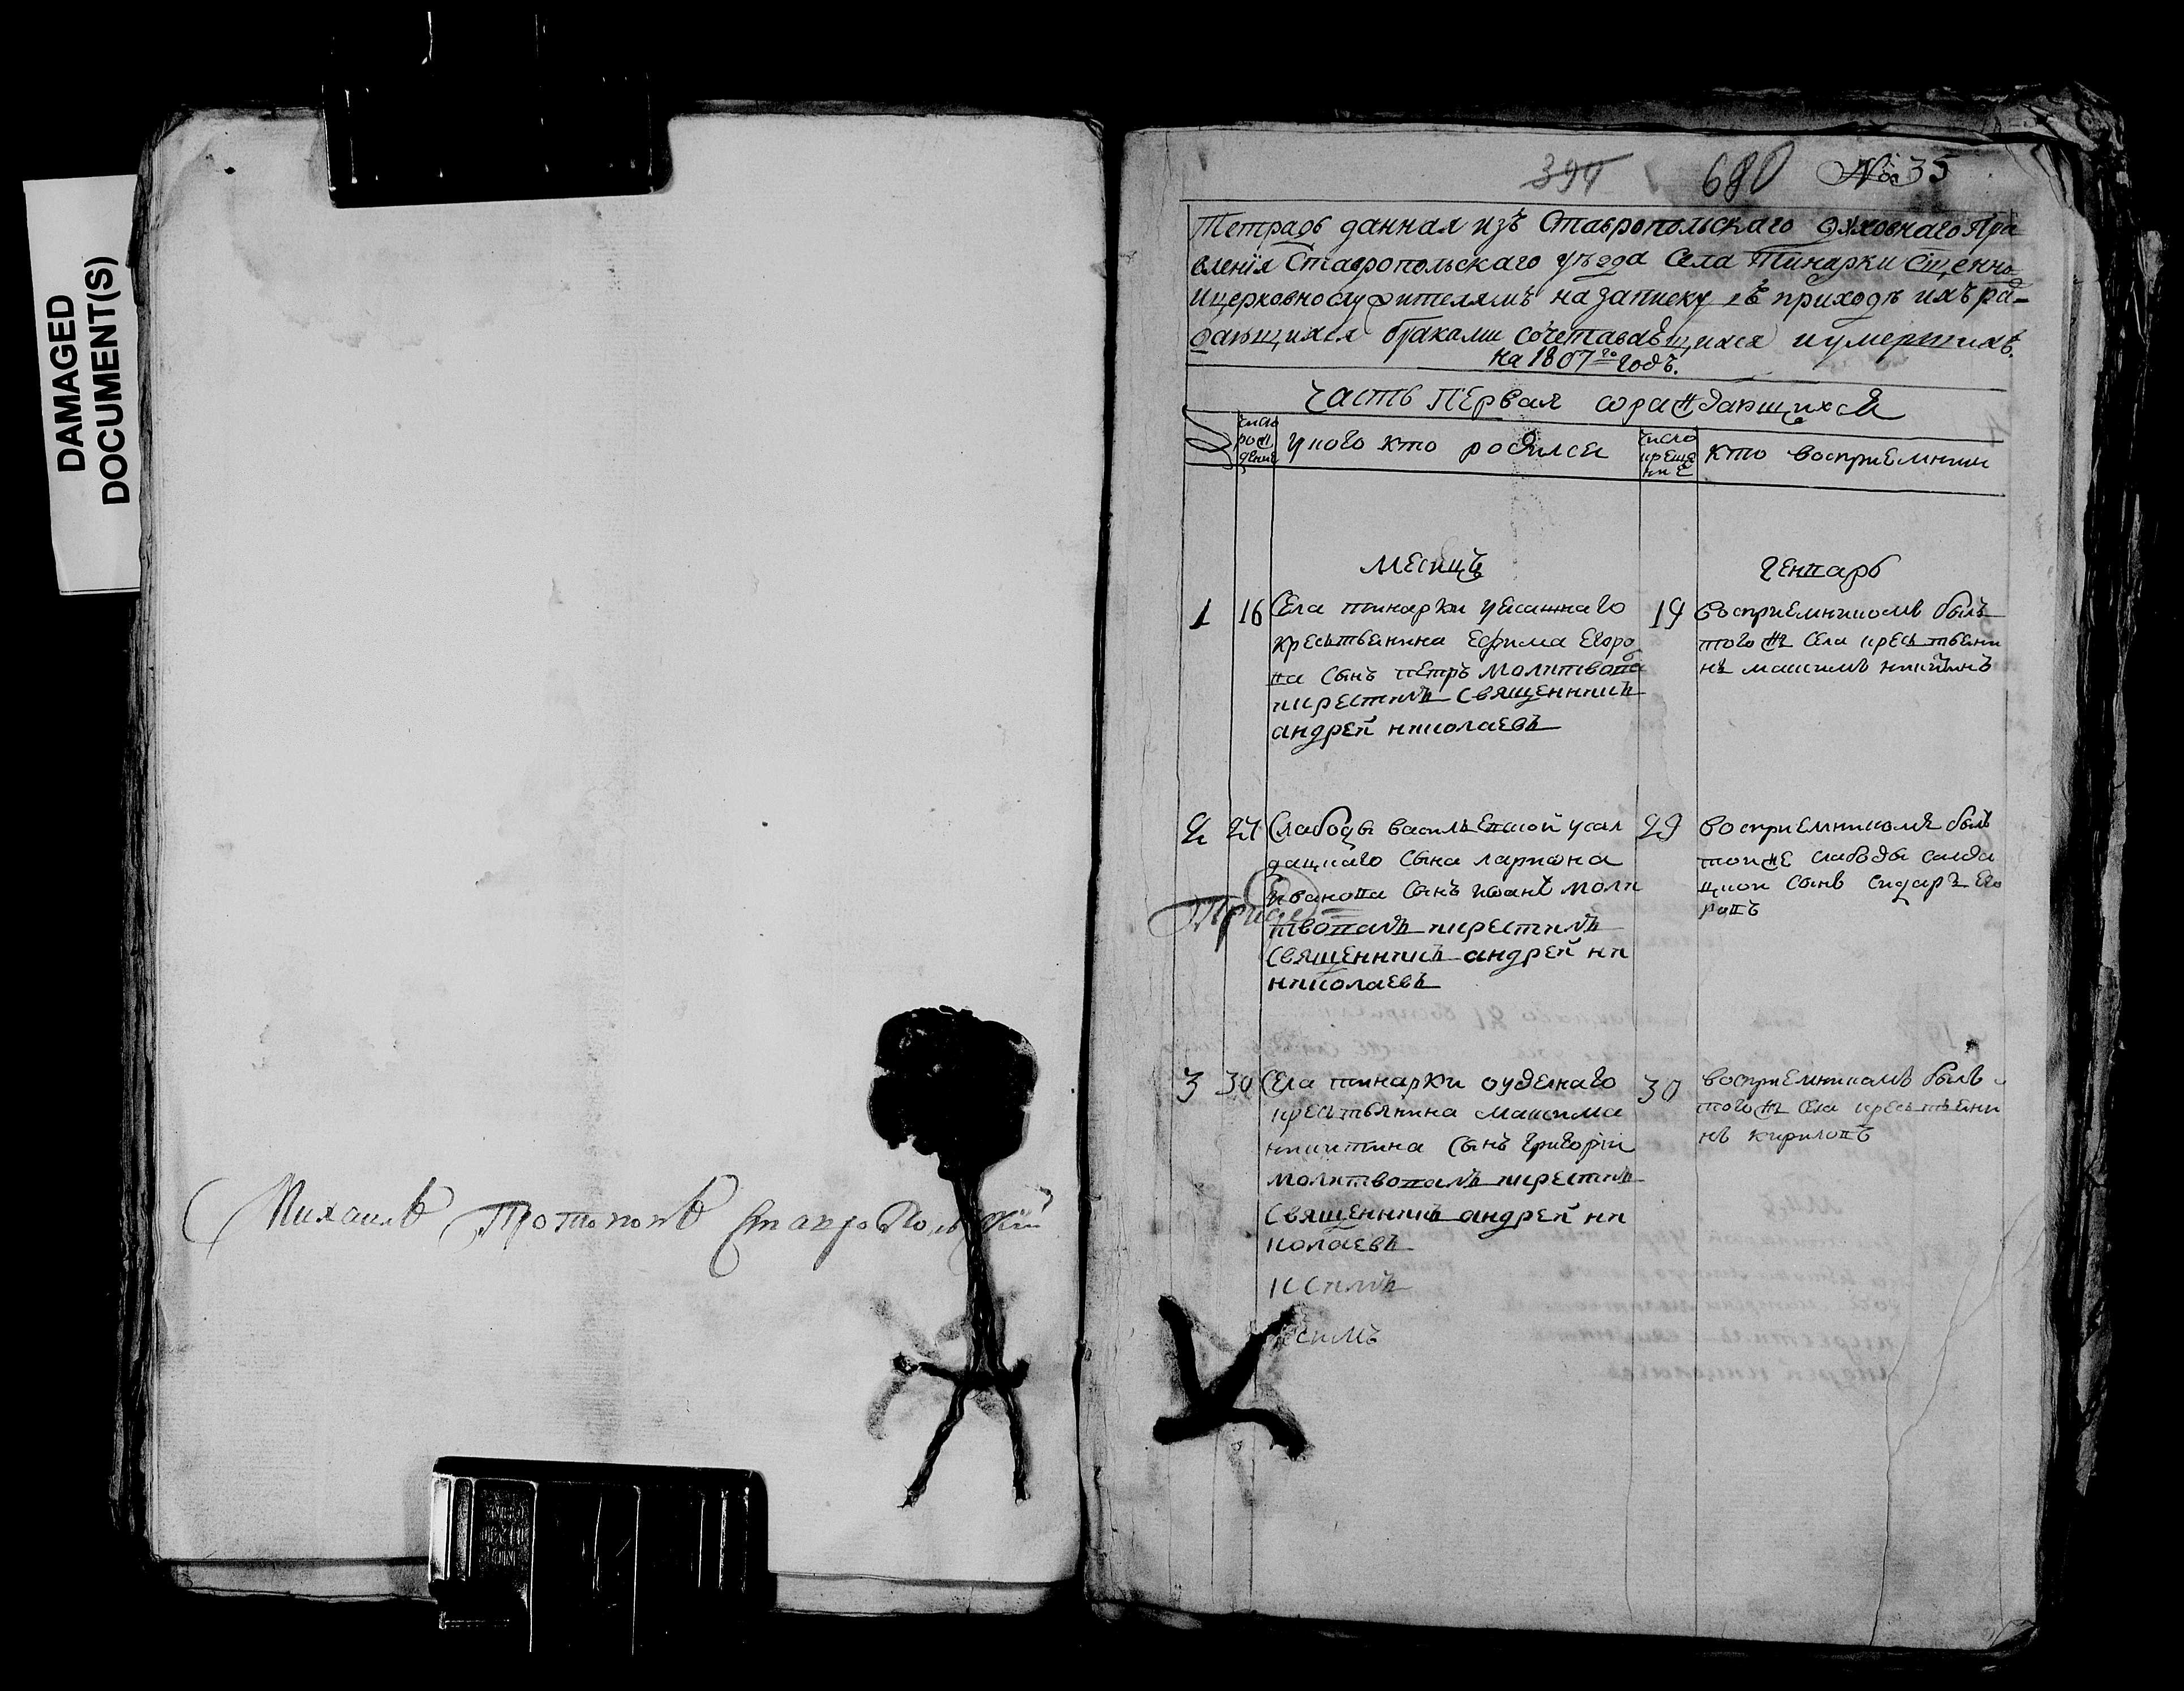 DAMAGED
DOCUMENT(S)
Михаилъ Протопопъ Ставропольскій
394 680 № 35
Тетрадь данная изъ Ставропольскаго духовнаго Пра
вленія Ставропольскаго уѣзда Села Тинарки сщенно
ицерковнослужителямъ на записку въ приходѣ ихъ ра-
дающихся браками сочетавающихся иумершихъ.
на 1807го годъ.
часть первая ораждающихся
число рождение
у ково кто родился
число крещение
кто восприемники
месяцъ
генварь
1 16 Села тинарки
кресьтвенина Ефима Егоро
ва сынъ петръ молитвова
икрестилъ священникъ
андрей николаевъ
19 восприемникомъ былъ
того же села кресьтвени
нъ максимъ никитинъ
2 27 Слабоды васильевской у сал
дацкаго сына лариона
иванова сынъ иванъ моли
твовалъ икрестилъ
священникъ андрей ни
николаевъ
29 восприемникомъ былъ
тойже слабоды салда
цкои сынъ сидаръ его
ровъ
3 30 Села тинарки оуделнаго
кресьтвянина максима
никитина сынъ григории
молитвовалъ икрестилъ
священникъ андрей ни
колаевъ
30 восприемникомъ былъ
тогожъ села кресьтвени
нъ кириловъ